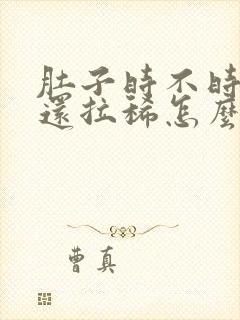 肚子時不時
還拉稀怎麼
曹真